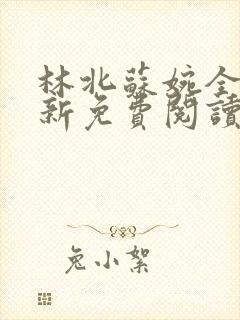 林北蘇婉全
新免費閱讀
兔小絮